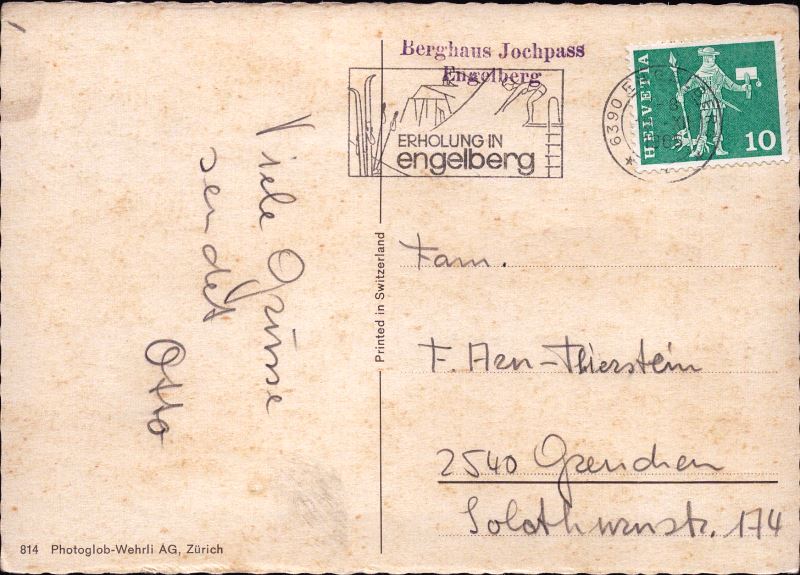 Viele Grüsse
sendet
Otto
814 Photoglob-Wehrli AG, Zürich
Printed in Switzerland
Berghaus Jochpass
Engelberg
ERHOLUNG IN
engelberg
6390
HELVETIA
10
Fam.
F. Arn-Thierstein
2540 Grenchen
Solothurnstr. 174